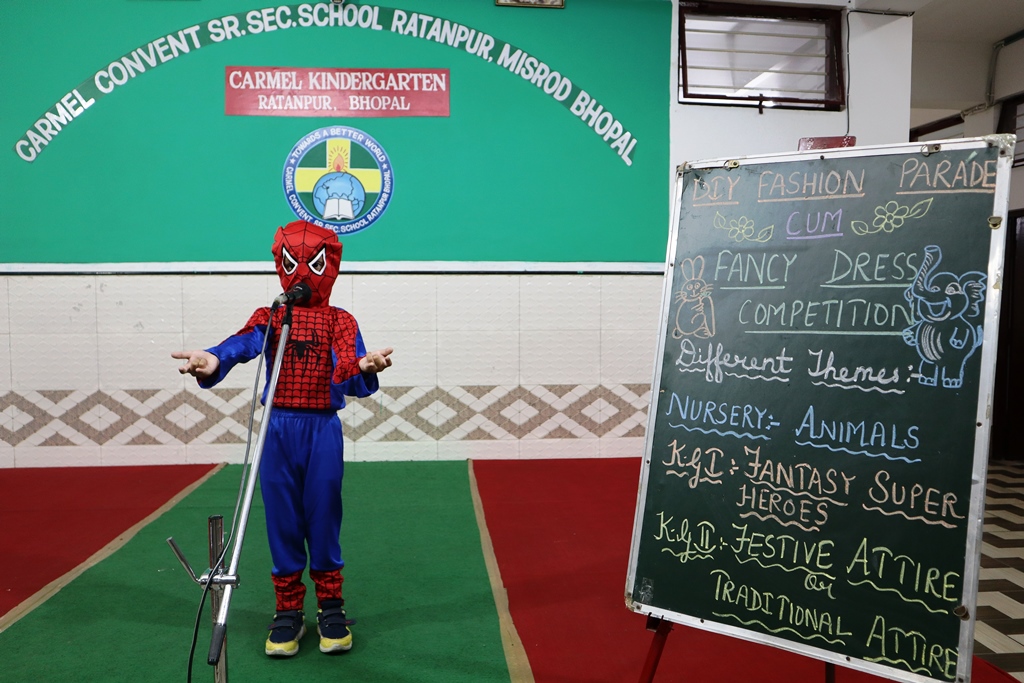 CARMEL CONVENT SR.SEC.SCHOOL RATANPUR, MISROD BHOPAL
CARMEL KINDERGARTEN
RATANPUR, BHOPAL
TOWARDS A BETTER WORLD
CARMEL CONVENT SR.SEC.SCHOOL RATANPUR BHOPAL
DIY FASHION PARADE
CUM
FANCY DRESS
COMPETITION
Different Themes:-
NURSERY:- ANIMALS
K.G I:- FANTASY SUPER
HEROES
K.G II:- FESTIVE ATTIRE
or
TRADITIONAL ATTIRE